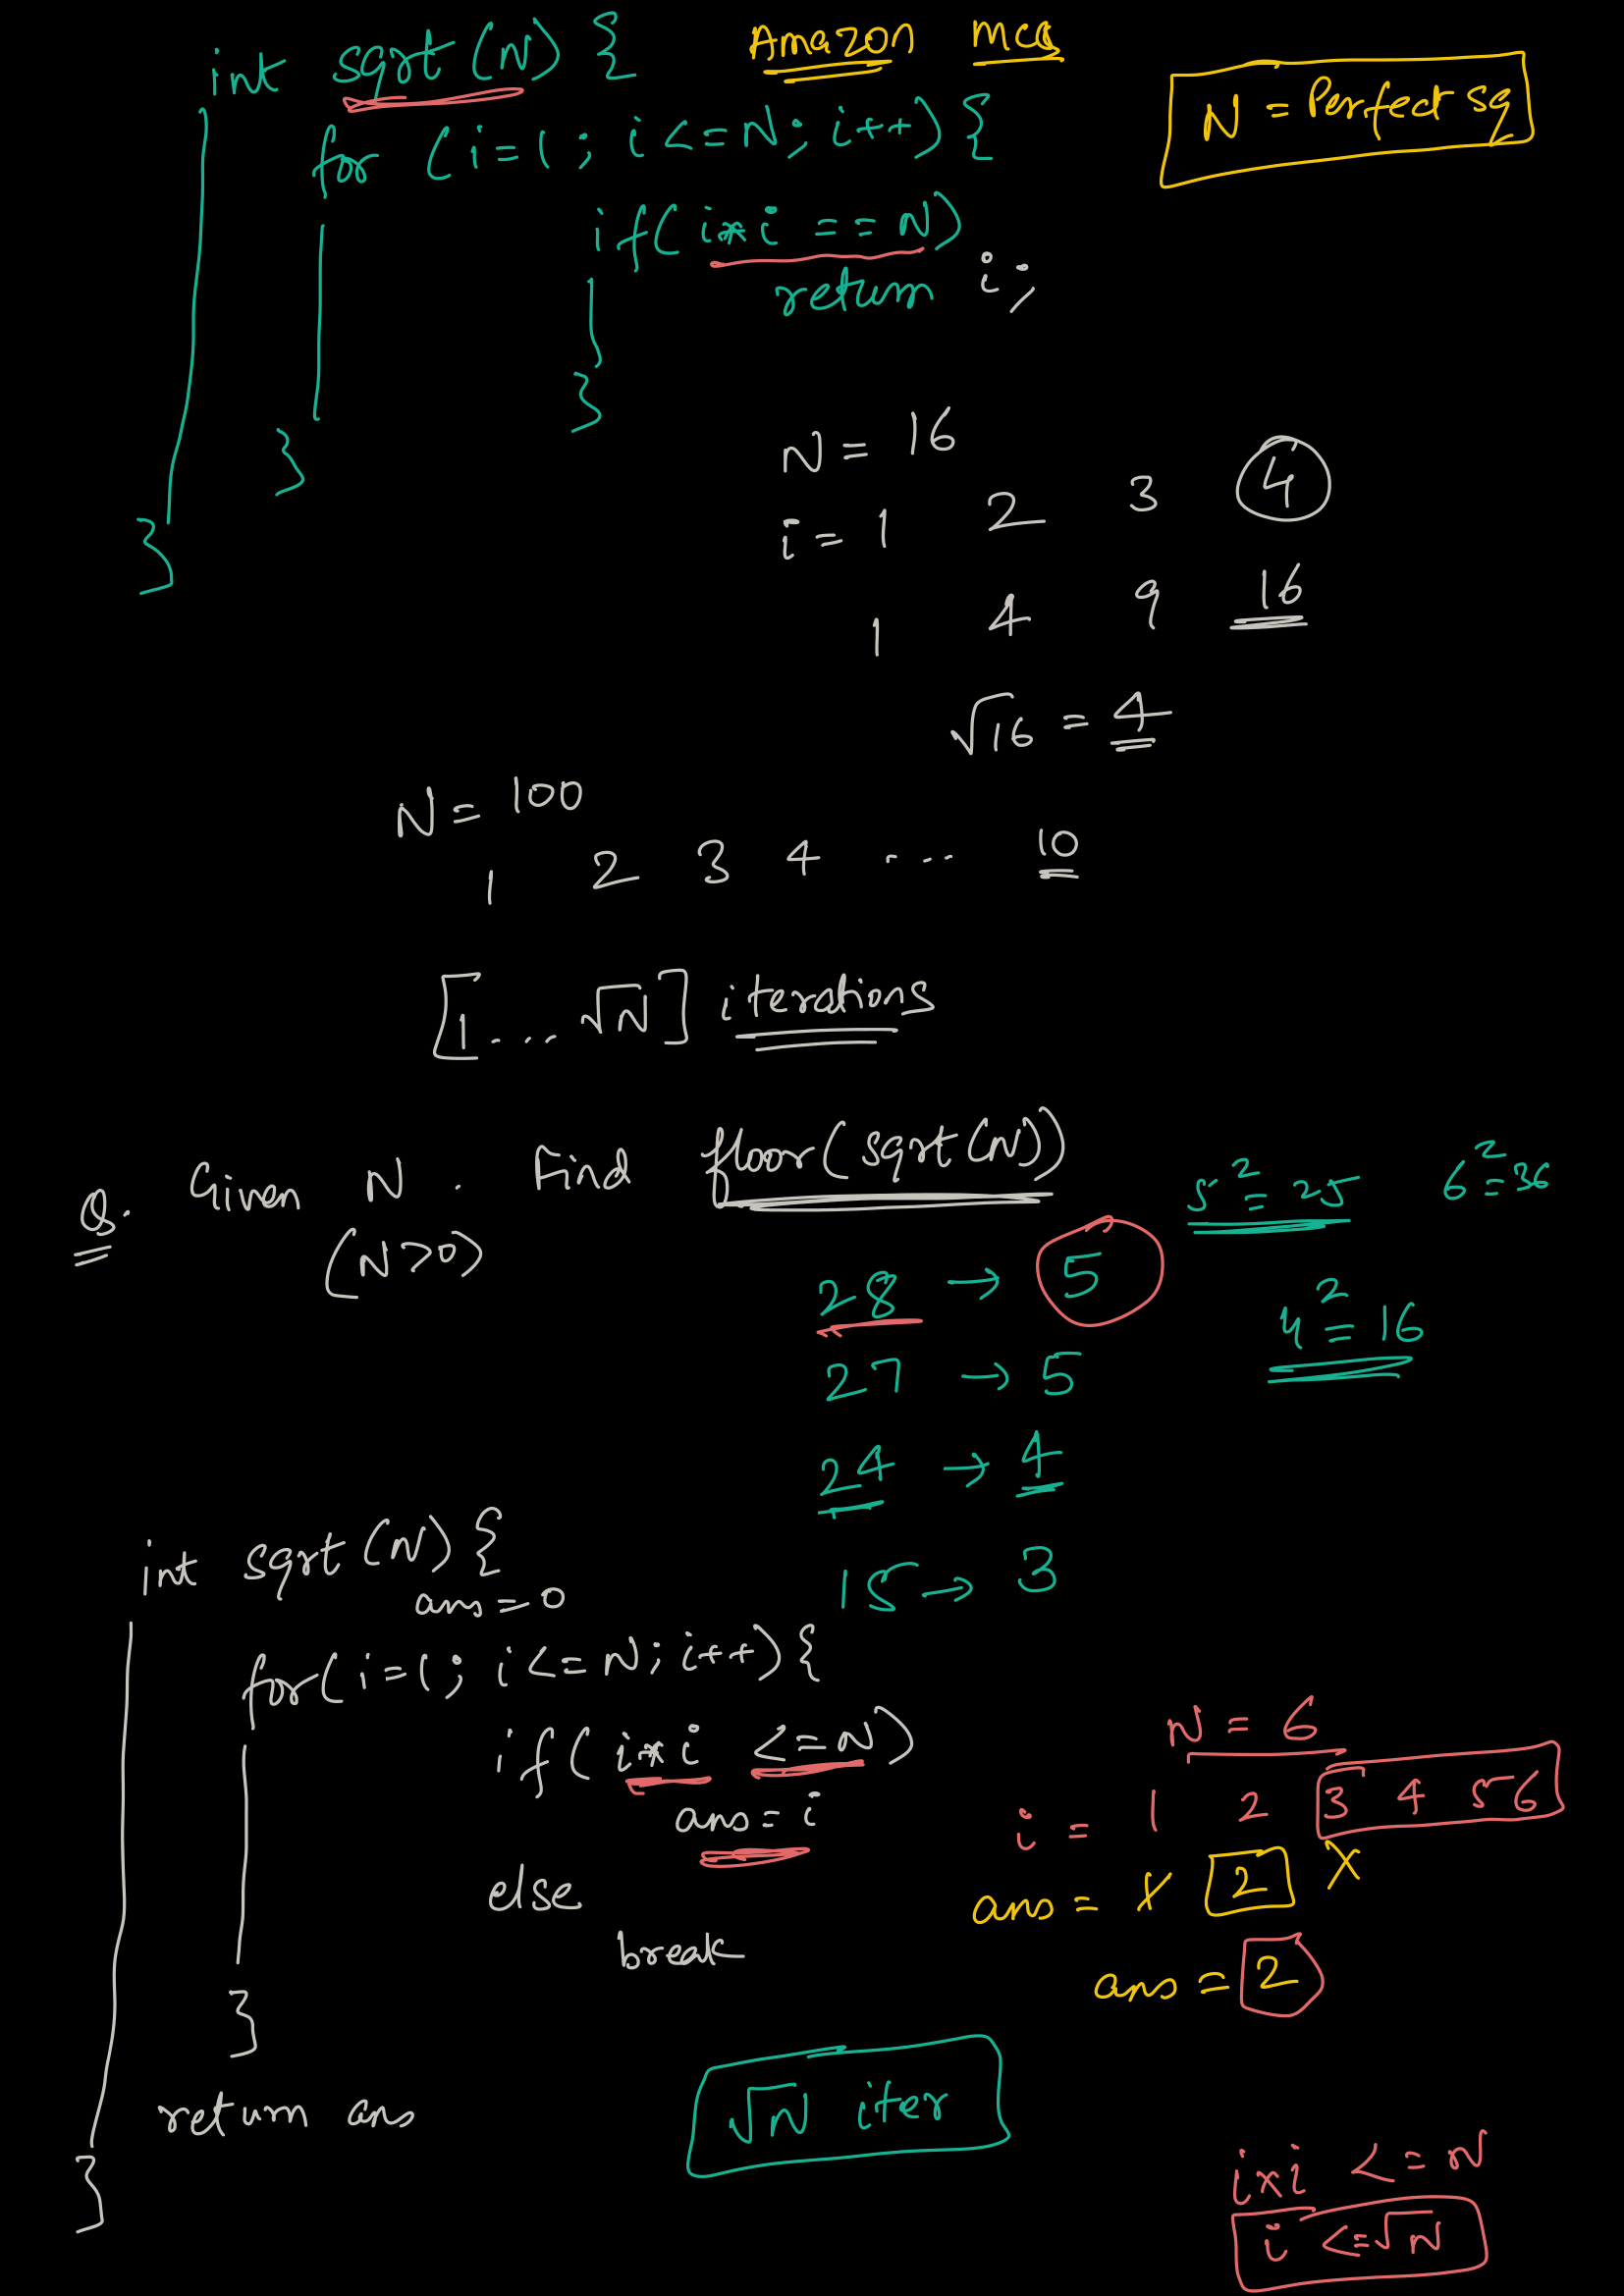 Amazon mcq
int sqrt (N) {
N = Perfect sq
for (i=1; i<=N; i++) {
if( i*i == N)
return i;
}
}
}
N = 16
i = 1 2 3 4
1 4 9 16
√16 = 4
N = 100
1 2 3 4 ... 10
[1 ... √N] iterations
Q. Given N. Find floor(sqrt(N))
(N>0)
5² = 25 6² = 36
4² = 16
28 → 5
27 → 5
24 → 4
15 → 3
int sqrt (N) {
ans = 0
for (i=1; i<=N; i++) {
if( i*i <=N)
ans = i
else
break
}
return ans
}
N = 6
i = 1 2 3 4 5 6
ans = 1 2 X
ans = 2
√N iter
i×i <= N
i <= √N